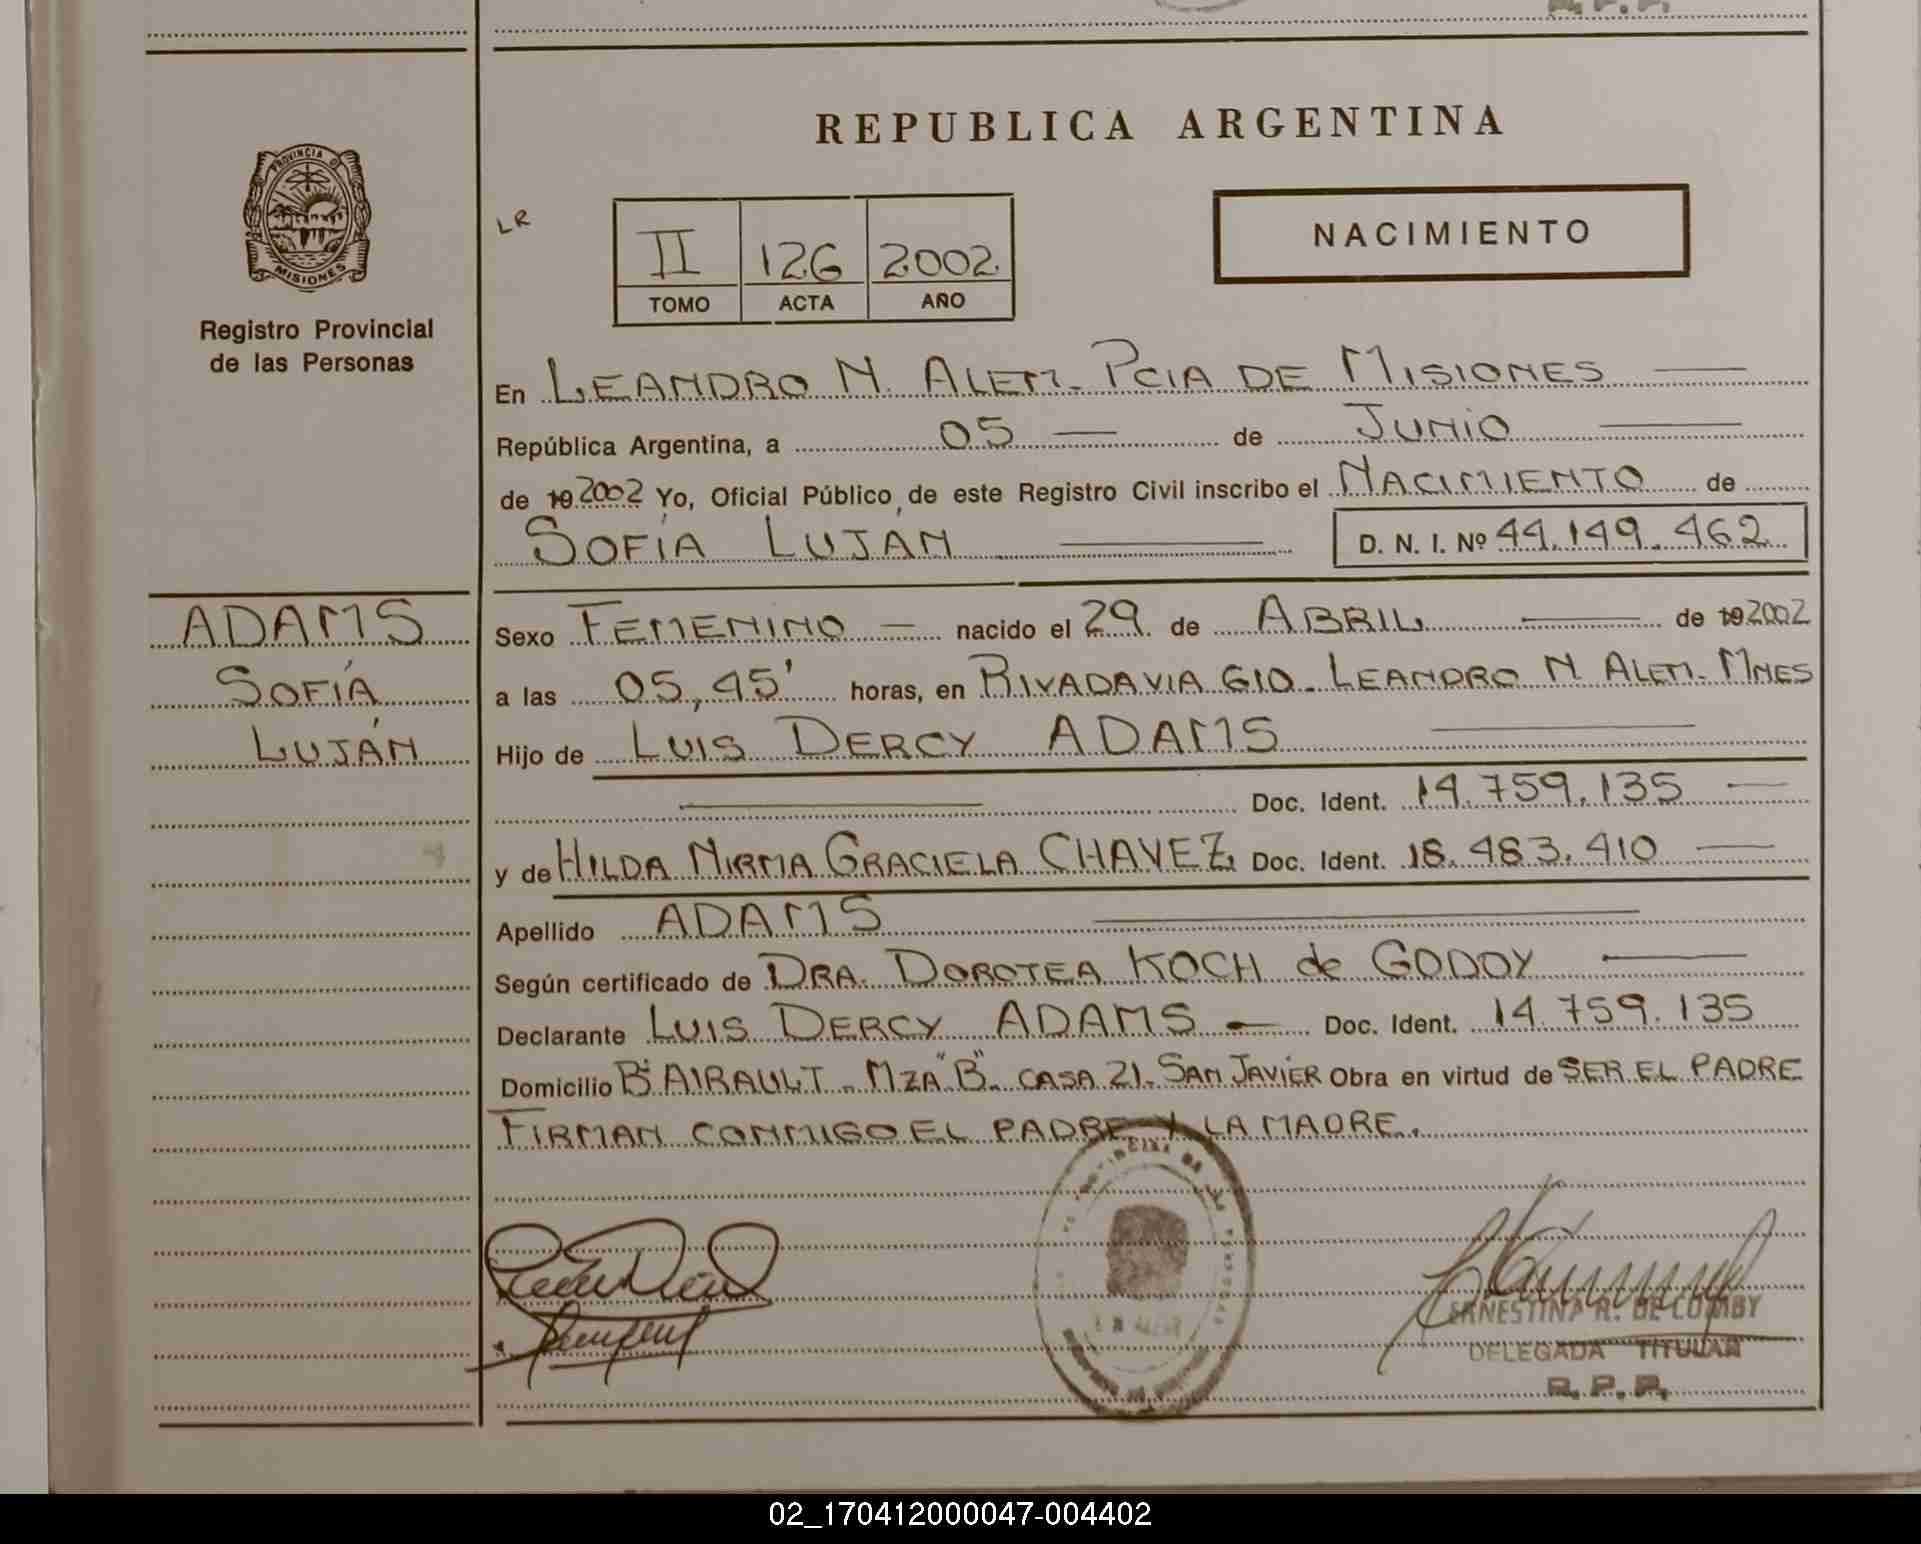 R.P.P.
REPUBLICA ARGENTINA
PROVINCIA DE
MISIONES
Registro Provincial
de las Personas
LR
II 126 2002
TOMO ACTA AÑO
NACIMIENTO
En LEANDRO N. ALEM - PCIA DE MISIONES
República Argentina, a 05 de JUNIO
de 19 2002 Yo, Oficial Público, de este Registro Civil inscribo el NACIMIENTO de
SOFÍA LUJÁN D. N. I. Nº 44.149.462
ADAMS
SOFÍA
LUJÁN
Sexo FEMENINO nacido el 29 de ABRIL de 19 2002
a las 05,45' horas, en RIVADAVIA 610 - LEANDRO N. ALEM - MNES
Hijo de LUIS DERCY ADAMS
Doc. Ident. 14.759.135
y de HILDA NIRMA GRACIELA CHAVEZ Doc. Ident. 18.483.410
Apellido ADAMS
Según certificado de DRA. DOROTEA KOCH de GODOY
Declarante LUIS DERCY ADAMS Doc. Ident. 14.759.135
Domicilio Bº AIRAULT - MZA "B" - CASA 21 - SAN JAVIER Obra en virtud de SER EL PADRE
FIRMAN CONMIGO EL PADRE Y LA MADRE.
ERNESTINA R. DE
DELEGADA TITULAR
R. P. P.
02_170412000047-004402